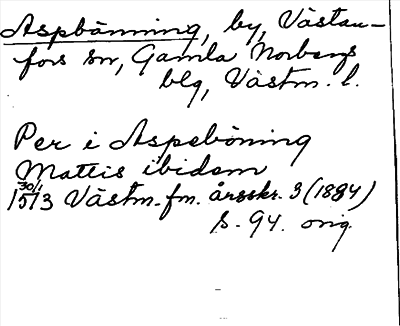 Aspbänning, by, Västan-
fors sn, Gamla Norbergs
blg, Västm. l.
Per i Aspeböning
Mattis ibidem
30/1 1513 Västm. fm. årsskr. 3 (1884)
S. 94. orig.